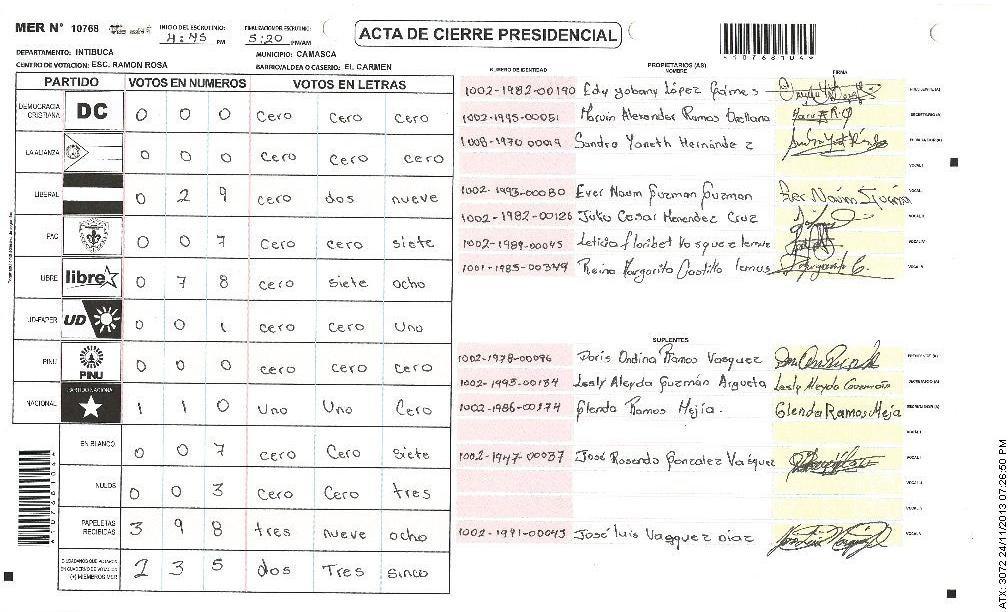 MER N° 10768 INICIO DEL ESCRUTINIO: 4:45 PM FINALIZACION DEL ESCRUTINIO: 5:20 PM/AM
ACTA DE CIERRE PRESIDENCIAL
A107681049
DEPARTAMENTO: INTIBUCA MUNICIPIO: CAMASCA
CENTRO DE VOTACION: ESC. RAMON ROSA BARRIO/ALDEA O CASERIO: EL CARMEN
PARTIDO VOTOS EN NUMEROS VOTOS EN LETRAS
DEMOCRACIA CRISTIANA DC 0 0 0 cero cero cero
LA ALIANZA 0 0 0 cero cero cero
LIBERAL 0 2 9 cero dos nueve
PAC 0 0 7 cero cero siete
LIBRE libre 0 7 8 cero siete ocho
UD-FAPER UD 0 0 1 cero cero uno
PINU PINU 0 0 0 cero cero cero
NACIONAL PARTIDO NACIONAL 1 1 0 uno uno cero
EN BLANCO 0 0 7 cero cero siete
NULOS 0 0 3 cero cero tres
PAPELETAS RECIBIDAS 3 9 8 tres nueve ocho
CIUDADANOS QUE VOTARON EN CUADERNO DE VOTACION (+) MIEMBROS MER 2 3 5 dos Tres sinco
PROPIETARIOS (AS)
NUMERO DE IDENTIDAD NOMBRE FIRMA
1002-1982-00190 Edy yobany López Gámes PRESIDENTE (A)
1002-1995-00051 Marvin Alexander Ramos Orellana SECRETARIO (A)
1008-1970-00019 Sandra Yaneth Hernández ESCRUTADOR (A)
VOCAL I
1002-1993-00080 Ever Naum Guzman Guzman Ever Naúm Guzmán VOCAL II
1002-1982-00126 Julio Cesar Menendez Cruz VOCAL III
1002-1989-00045 Leticia floribel Vasquez lemus VOCAL IV
1001-1985-00349 Reina Margarita Castillo lemus VOCAL V
SUPLENTES
1002-1978-00096 Doris Ondina Ramos Vasquez PRESIDENTE (A)
1002-1993-00134 Lesly Aleyda Guzmán Argueta Lesly Aleyda Guzmán SECRETARIO (A)
1002-1986-00174 Glenda Ramos Mejía. Glenda Ramos Mejia ESCRUTADOR (A)
VOCAL I
1002-1947-00037 José Rosendo Gonzalez Vasquez
1002-1991-00043 José Luis Vasquez Diaz
A107681049
ATX: 3072 24/11/2013 07:26:50 PM